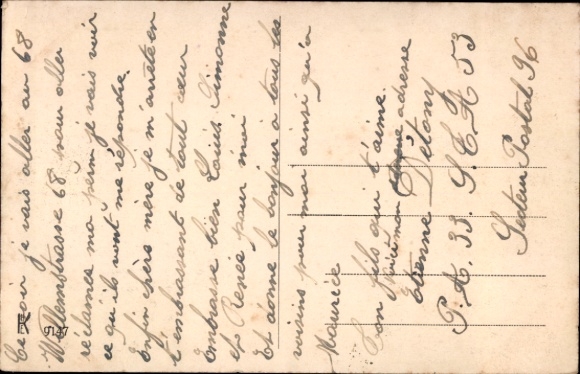 Ce soir je vais aller au 68
Willemstrasse 68 pour aller
réclamer ma perm je vais voir
ce qu'ils vont me répondre.
Enfin chère mère je m'arrête en
t'embrassant de tout cœur
Embrasse bien Louis, Simonne
et Renée pour moi
Et donne le bonjour à tous les
voisins pour moi ainsi qu'a
Maurice
Ton fils qui t'aime.
Voici mon adresse
Etienne Détany
P.A. 33. S.E.A 53
Secteur Postal 96
9147